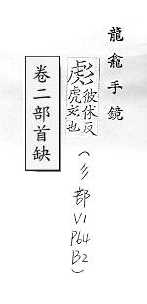 龍龕手鏡
彪彼休反
虎文也
(彡部
V1
P64
B2)
卷二部首缺